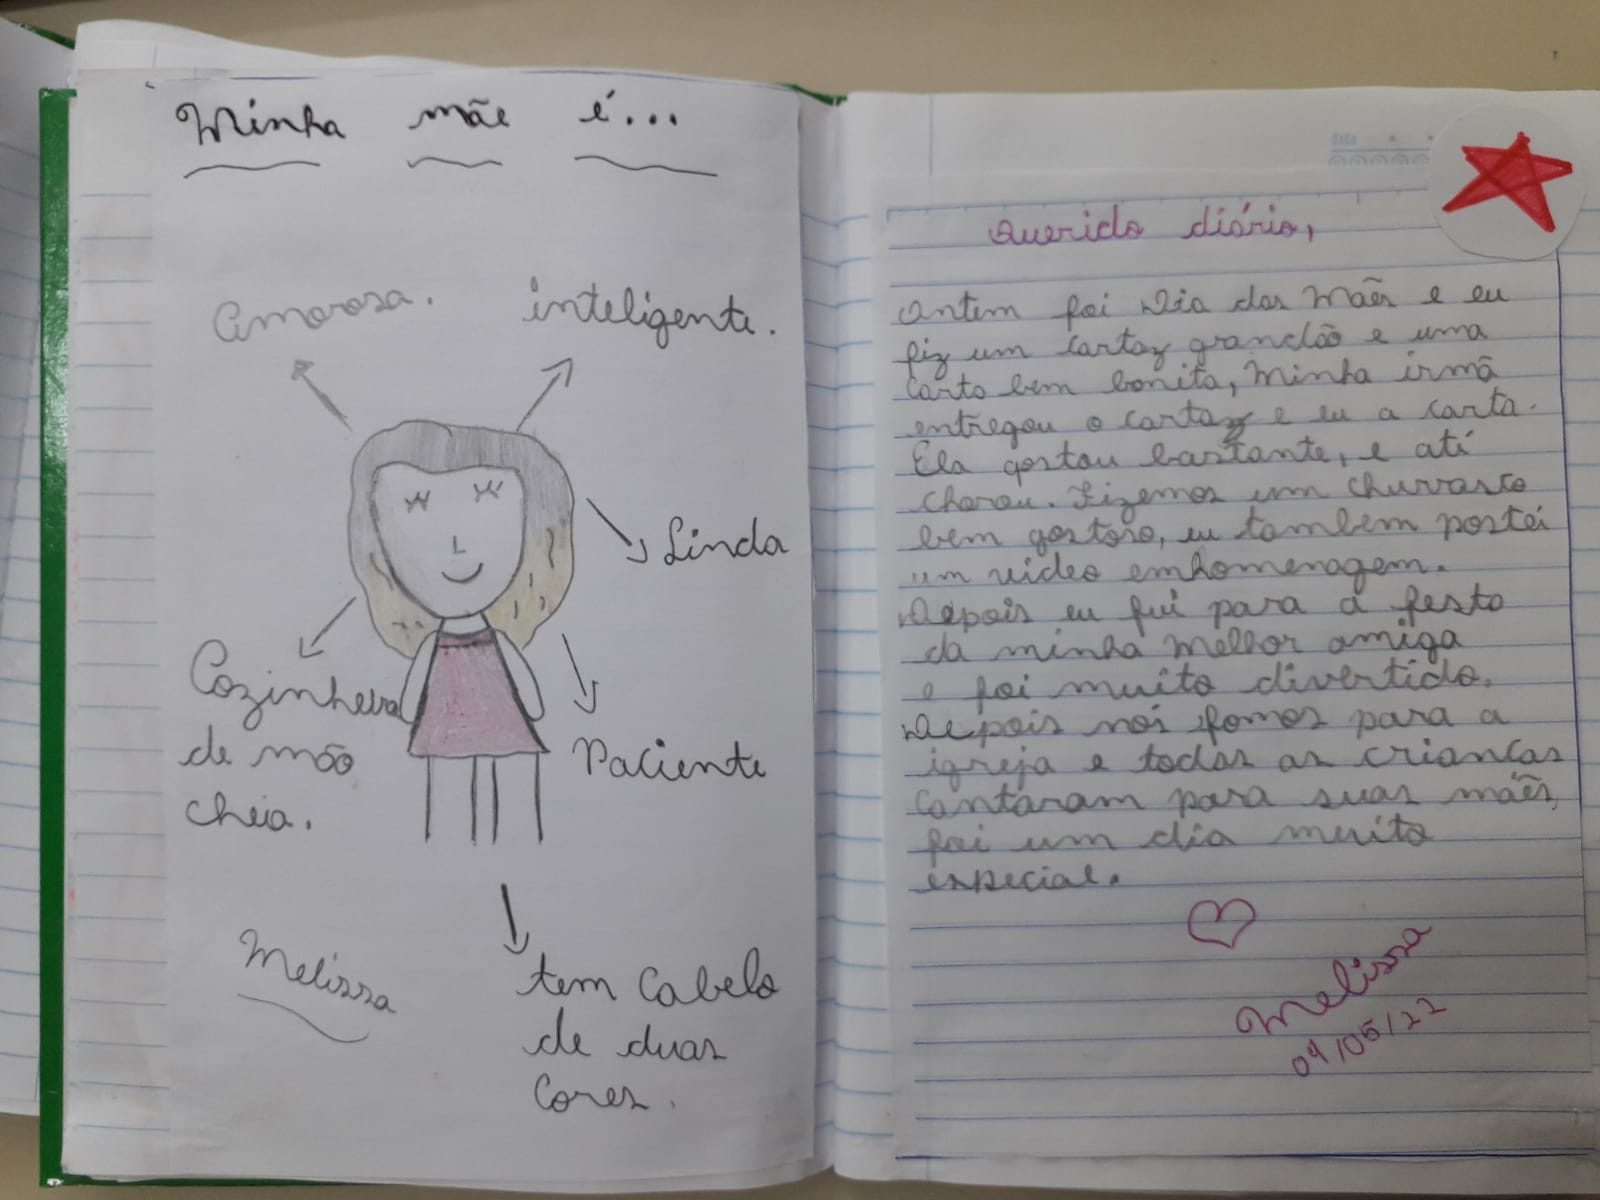 Minha mãe é...
Amorosa.
inteligente.
Linda
Cozinheira
de mão
cheia.
Paciente
tem Cabelo
de duas
Cores.
Melissa
data
Querido diário,
Ontem foi Dia das Mães e eu
fiz um cartaz grandão e uma
carta bem bonita, Minha irmã
entregou o cartaz e eu a carta.
Ela gostou bastante, e até
chorou. Fizemos um churrasco
bem gostoso, eu tambem postei
um video em homenagem.
Depois eu fui para a festa
da minha melhor amiga
e foi muito divertido.
Depois nós fomos para a
igreja e todas as crianças
cantaram para suas mães,
foi um dia muito
especial.
Melissa
09/05/22